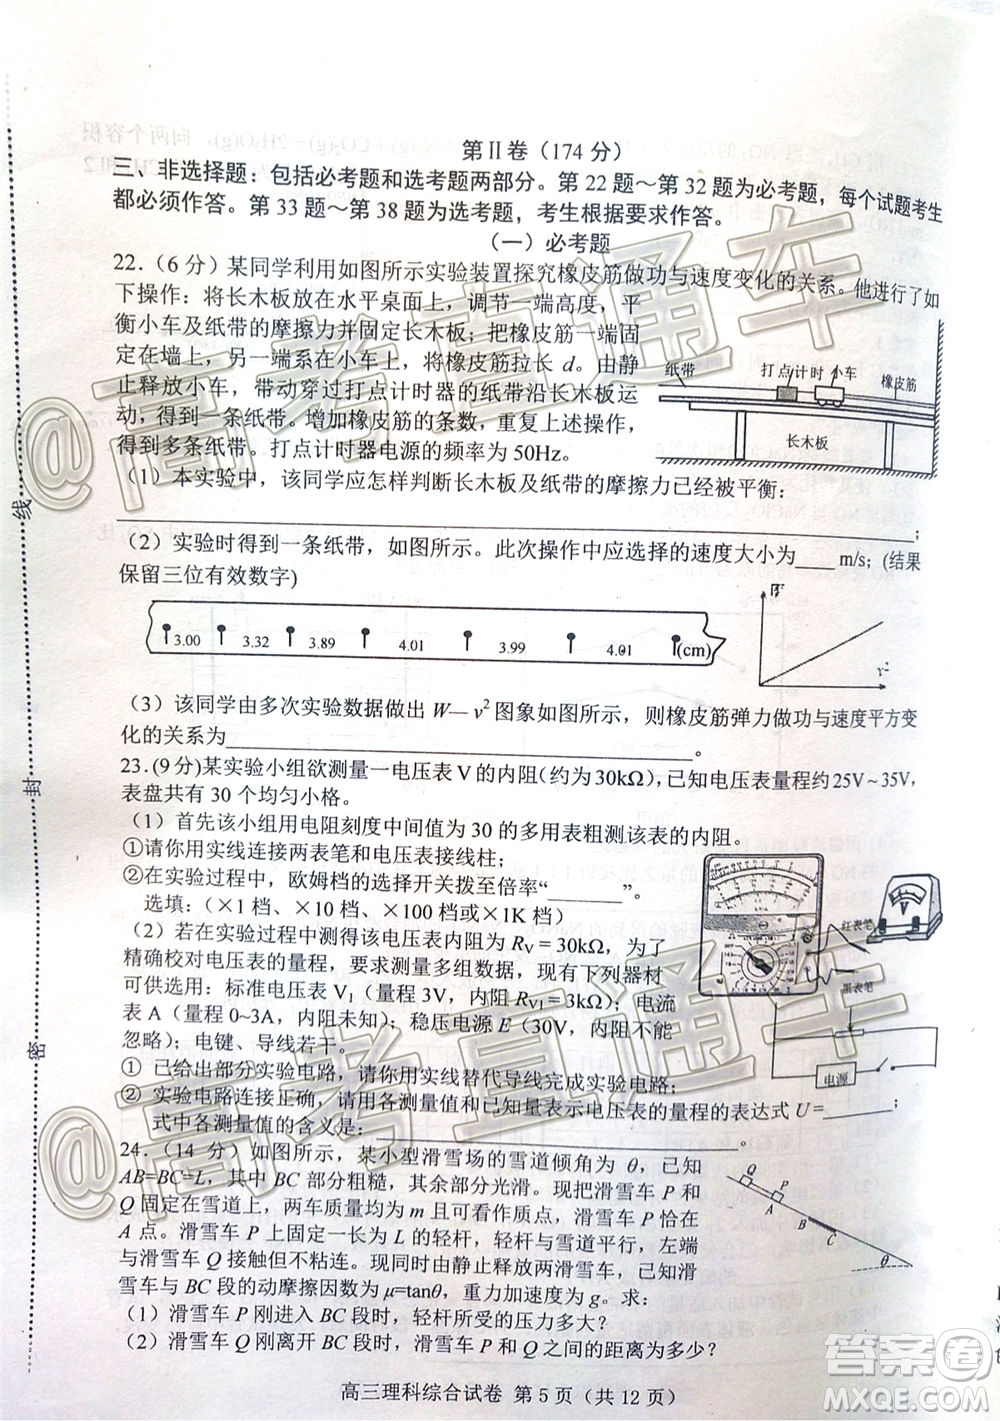 第Ⅱ卷（174 分）
三、非选择题：包括必考题和选考题两部分。第 22 题～第 32 题为必考题，每个试题考生
都必须作答。第 33 题～第 38 题为选考题，考生根据要求作答。
（一）必考题
22.（6 分）某同学利用如图所示实验装置探究橡皮筋做功与速度变化的关系。他进行了如
下操作：将长木板放在水平桌面上，调节一端高度，平
衡小车及纸带的摩擦力并固定长木板；把橡皮筋一端固定
在墙上，另一端系在小车上，将橡皮筋拉长 d。由静
止释放小车，带动穿过打点计时器的纸带沿长木板运
动，得到一条纸带。增加橡皮筋的条数，重复上述操作，
得到多条纸带。打点计时器电源的频率为 50Hz。
纸带
打点计时
小车
橡皮筋
长木板
(1) 本实验中，该同学应怎样判断长木板及纸带的摩擦力已经被平衡：
；
（2）实验时得到一条纸带，如图所示。此次操作中应选择的速度大小为____ m/s；(结果
保留三位有效数字)
3.00 3.32 3.89 4.01 3.99 4.01 (cm)
W
v²
（3）该同学由多次实验数据做出 W— v² 图象如图所示，则橡皮筋弹力做功与速度平方变
化的关系为 。
23.(9 分)某实验小组欲测量一电压表 V 的内阻(约为 30kΩ),已知电压表量程约 25V～35V,
表盘共有 30 个均匀小格。
（1）首先该小组用电阻刻度中间值为 30 的多用表粗测该表的内阻。
①请你用实线连接两表笔和电压表接线柱；
②在实验过程中，欧姆档的选择开关拨至倍率“______”。
选填：（×1 档、×10 档、×100 档或×1K 档）
（2）若在实验过程中测得该电压表内阻为 RV = 30kΩ，为了
精确校对电压表的量程，要求测量多组数据，现有下列器材
可供选用：标准电压表 V₁（量程 3V，内阻 RV1＝3kΩ；电流
表 A（量程 0~3A，内阻未知）；稳压电源 E（30V，内阻不能
忽略）；电键、导线若干。
① 已给出部分实验电路，请你用实线代替导线完成实验电路；
② 实验电路连接正确，请用各测量值和已知量表示电压表的量程的表达式 U＝______；
式中各测量值的含义是：
红表笔
黑表笔
电源
24.（14 分）如图所示，某小型滑雪场的雪道倾角为 θ，已知
AB=BC=L，其中 BC 部分粗糙，其余部分光滑。现把滑雪车 P 和
Q 固定在雪道上，两车质量均为 m 且可看作质点，滑雪车 P 恰在
A 点。滑雪车 P 上固定一长为 L 的轻杆，轻杆与雪道平行，左端
与滑雪车 Q 接触但不粘连。现同时由静止释放两滑雪车，已知滑
雪车与 BC 段的动摩擦因数为 μ=tanθ，重力加速度为 g。求：
（1）滑雪车 P 刚进入 BC 段时，轻杆所受的压力多大？
（2）滑雪车 Q 刚离开 BC 段时，滑雪车 P 和 Q 之间的距离为多少？
Q
P
A
B
C
θ
高三理科综合试卷 第 5 页（共 12 页）
密
封
线
@高考直通车
@高考直通车
答案圈
MXQE.COM